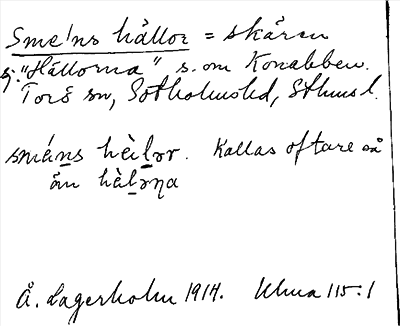 Sme'ns hållor = skären
"Hällorna" s. om Konabben.
Torö sn, Sotholms hd, Sthms l.
smáns hèlǝr. Kallas oftare så
än hàlǝṇa
Å. Lagerholm 1914. Ulma 115:1